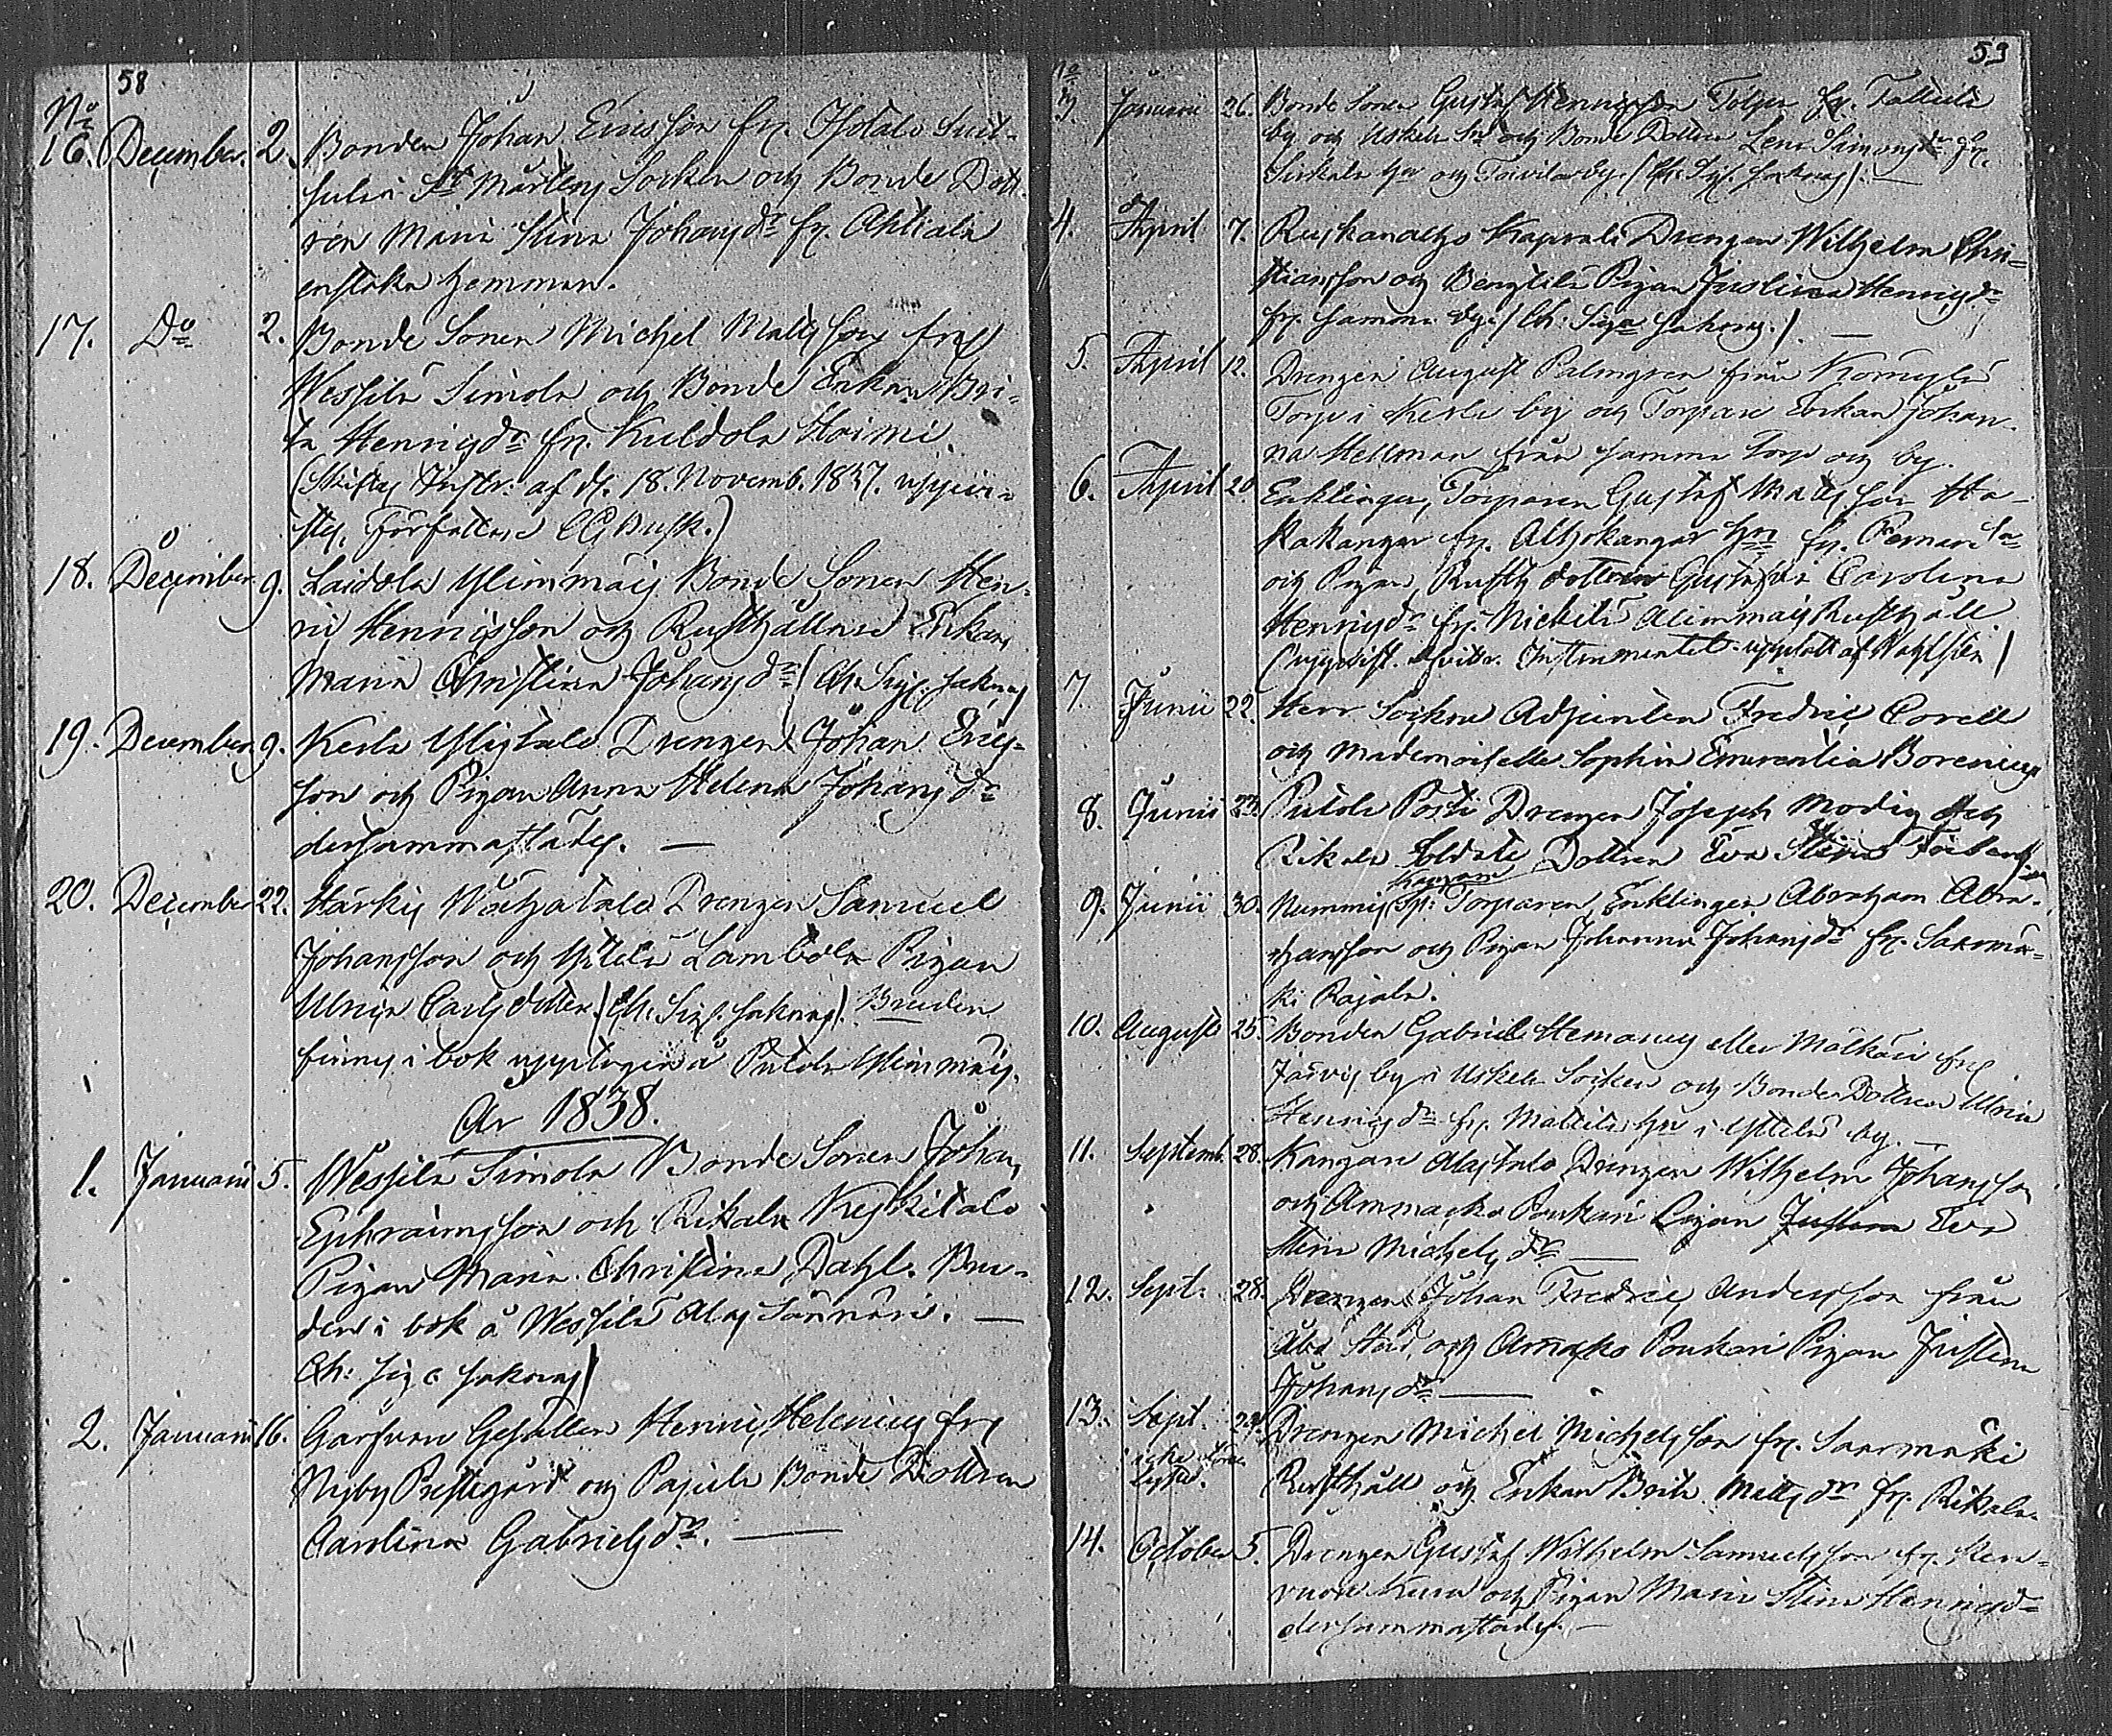 58
No
16. December. 2. Bonden Johan Ericsson fr. Isotalo Suit-
sula i St Mårtens Socken och Bonde Dott-
ren Maria Stina Johansdr fr. Ahtiala
enstaka hemman.
17. Do 2. Bonde Sonen Michel Mattsson från
Wessilä Simola och Bonde Enkan Bri-
ta Henrigsdr fr. Kuldola Hoimi.
(Skiftes Instr. af d. 18. Novemb. 1837. uppvi-
stes, Författare CG Busk.)
18. December 9. Laidola Ylimmäis Bonde Sonen Hen-
ric Henricsson och Rusthållare Enkan
Maria Christina Johansdr (Ch. Sig. saknas)
19. December 9. Kesla Ylistalo Drengen Johan Erics-
son och Pigan Anna Helena Johansdr
dersammastädes. —
20. December 22. Härkis Wähatalo Drengen Samuel
Johansson och Yttelä Lambola Pigan
Ulrica Carlsdotter. (Ch. Sig. saknas). Bruden
finnes i bok upptagen å Putola Ylimmäis.
År 1838.
1. Januarii 5. Wessilä Simola Bonde Sonen Johan
Ephraimsson och Rikala Keskitalo
Pigan Maria Christina Dahl. Bru-
den i bok å Wessilä Alas Sännäri. —
Ch: Sig a saknas)
2. Januarii 16. Garfvare Gesällen Henric Helenius fr
Nyby Prestegård och Pajula Bonde Dottren
Carolina Gabrielsdr. —
59
No
3. Januarii 26. Bonde Sonen Gustaf Henricsson Tolpo fr. Tattula
by och Uskela Sn och Bonde Dottren Lena Simonsdr fr.
Sirkala hn och Toivila by. (Ch. Sig. saknas). —
4. April 7. Ruskanaltzo Kaprals Drengen Wilhelm Chri-
stiansson och Bengtila Pigan Justina Henrigsdr
fr. samma by. (Ch. Sig a saknas.) —
5. April 12. Drengen August Palmgren från
Torp i Kesla by och Torpare Enkan Johan-
na Hellman från samma Torp och by.
6. April 20 Enklingen, Torparen Gustaf Mattsson Ha-
kakangar fr. Altzokangar hn fr. Pemar Sn
och Pigan, Rusth. dottren Gustafva Carolina
Henrigsdr fr. Nickilä Alimmais Rusthåll.
(uppvist. Afvittr. Instrumentet upsatt af Wahlsten)
7. Junii 22. Herr Sockne Adjuncten Fredric Corell
och Mademoiselle Sophia Emerentia Borenius
8. Junii 23. Putola Posti Drengen Joseph Modig och
Rikala Soldate Dottren Eva Stina
9. Junii 30. Nummis Torparen, Enklingen Abraham Abra-
hamsson och Pigan Johanna Johansdr fr. Saarmä-
ki Rajala.
10. August 25. Bonden Gabriel Hemanus eller Mälkäri från
Järvis by i Uskela Socken och Bonden Dottren Ulrica
Henrigsdr fr. Mattila hn i Yttelä by. —
11. Septemb. 28. Kangare Alastalo Drengen Wilhelm Johansson
och Ammacko Poukari Pigan Justina Eva
Stina Michelsdr —
12. Sept. 28. Drengen Johan Fredric Andersson från
Åbo Stad, och Amacko Poukari Pigan Justina
Johansdr —
13. Sept. 29. Drengen Michel Michelsson fr. Saarmäki
icke Rusthåll och Enkan Brita Mattsdr fr. Rikala.
14. October 5. Drengen Gustaf Wilhelm Samuelsson fr.
och Pigan Maria Stina Henricsdr
dersammastädes. —